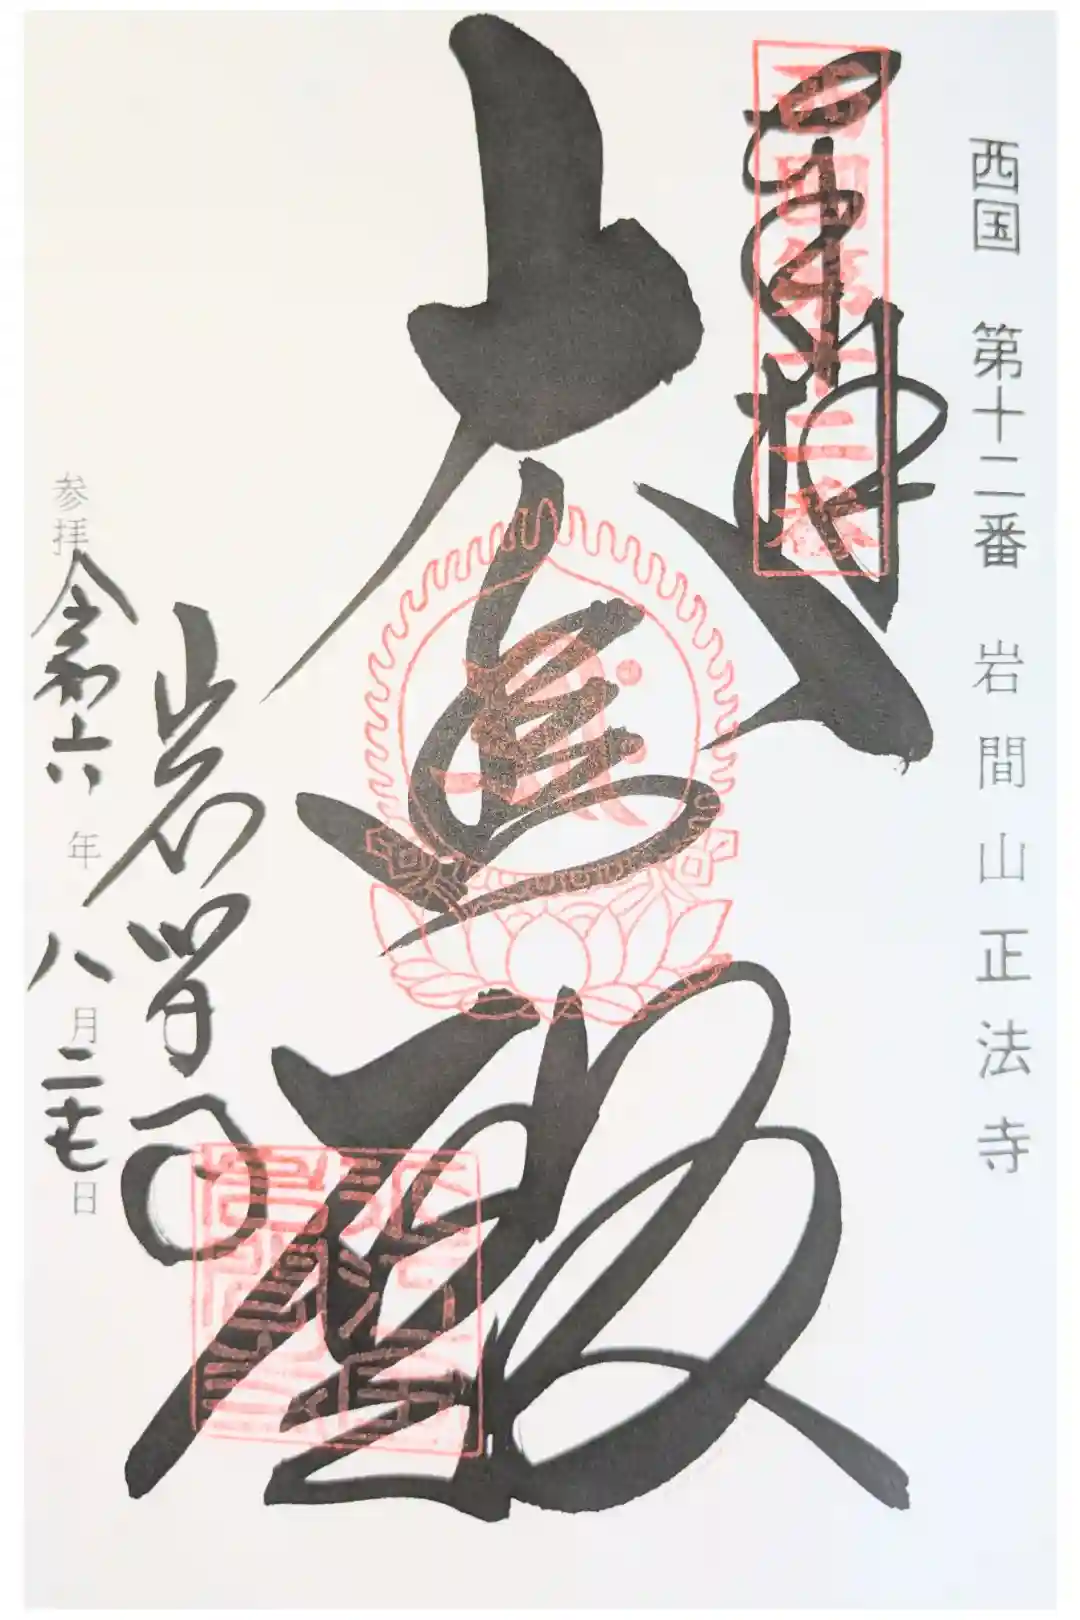 西国 第十二番 岩間山正法寺
奉拝
西国第十二番
大悲殿
岩間寺
参拝 令和六年八月二十七日